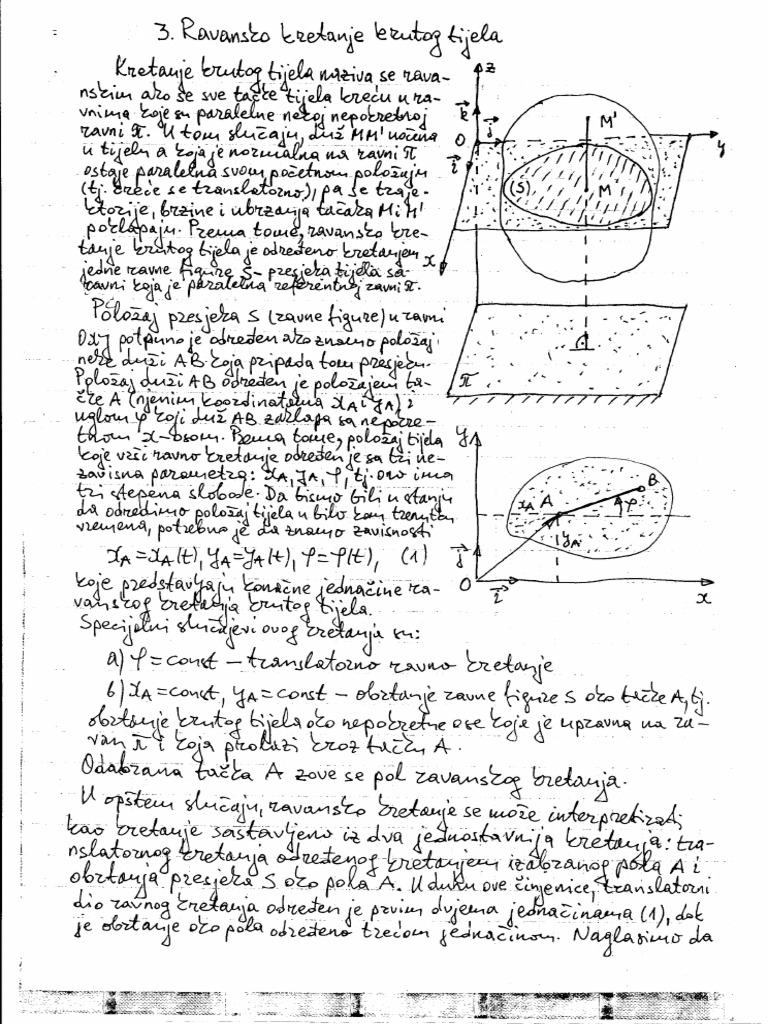 3. Ravansko kretanje krutog tijela
Kretanje krutog tijela naziva se rava-
nskim ako se sve tačke tijela kreću u ra-
vnima koje su paralelne nekoj nepokretnoj
ravni π. U tom slučaju, duž MM' uočena
u tijelu a koja je normalna na ravni π
ostaje paralelna svom početnom položaju
(tj. kreće se translatorno), pa se traje-
ktorije, brzine i ubrzanja tačaka M i M'
poklapaju. Prema tome, ravansko kre-
tanje krutog tijela je određeno kretanjem
jedne ravne figure S - presjeka tijela sa
ravni koja je paralelna referentnoj ravni π.
Položaj presjeka S (ravne figure) u ravni
Oxy potpuno je određen ako znamo položaj
neke duži AB koja pripada tom presjeku.
Položaj duži AB određen je položajem ta-
čke A (njenim koordinatama xA i yA) i
uglom φ koji duž AB zaklapa sa nepokre-
tnom x-osom. Prema tome, položaj tijela
koje vrši ravno kretanje određen je sa tri ne-
zavisna parametra: xA, yA, φ, tj. ono ima
tri stepena slobode. Da bismo bili u stanju
da odredimo položaj tijela u bilo kom trenutku
vremena, potrebno je da znamo zavisnosti
xA = xA(t), yA = yA(t), φ = φ(t), (1)
koje predstavljaju konačne jednačine ra-
vanskog kretanja krutog tijela.
Specijalni slučajevi ovog kretanja su:
a) φ = const – translatorno ravno kretanje
b) xA = const, yA = const – obrtanje ravne figure S oko tačke A, tj.
obrtanje krutog tijela oko nepokretne ose koje je upravna na ra-
van π i koja prolazi kroz tačku A.
Odabrana tačka A zove se pol ravanskog kretanja.
U opštem slučaju, ravansko kretanje se može interpretirati
kao kretanje sastavljeno iz dva jednostavnija kretanja: tra-
nslatornog kretanja određenog kretanjem izabranog pola A i
obrtanja presjeka S oko pola A. U duhu ove činjenice, translatorni
dio ravnog kretanja određen je prvim dvjema jednačinama (1), dok
je obrtanje oko pola određeno trećom jednačinom. Naglasimo da
z
k
M'
O
j
y
i
(S)
M
x
π
y
B
xA
A
φ
yA
j
O
i
x